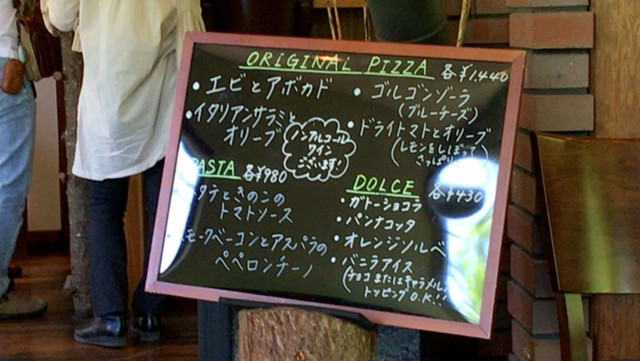 ORIGINAL PIZZA 各¥1,440
・エビとアボカド
・イタリアンサラミと
オリーブ
ノンアルコール
ワイン
ございます!
・ゴルゴンゾーラ
(ブルーチーズ)
・ドライトマトとオリーブ
(レモンをしぼって
さっぱり
PASTA 各¥980
タテときのこの
トマトソース
モークベーコンとアスパラの
ペペロンチーノ
DOLCE 各¥430
・ガトーショコラ
・パンナコッタ
・オレンジソルベ
・バニラアイス
(チョコまたはキャラメル
トッピングO.K!!